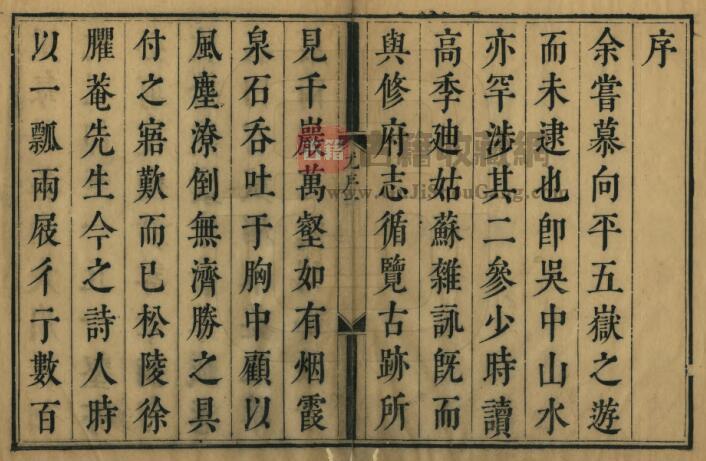 序
余嘗慕向平五嶽之遊
而未逮也卽吳中山水
亦罕涉其二參少時讀
高季迪姑蘇雜詠旣而
與修府志循覽古跡所
見千巖萬壑如有烟霞
泉石吞吐于胸中顧以
風塵潦倒無濟勝之具
付之寤歎而已松陵徐
臞菴先生今之詩人時
以一瓢兩屐彳亍數百
古籍
古籍收藏網